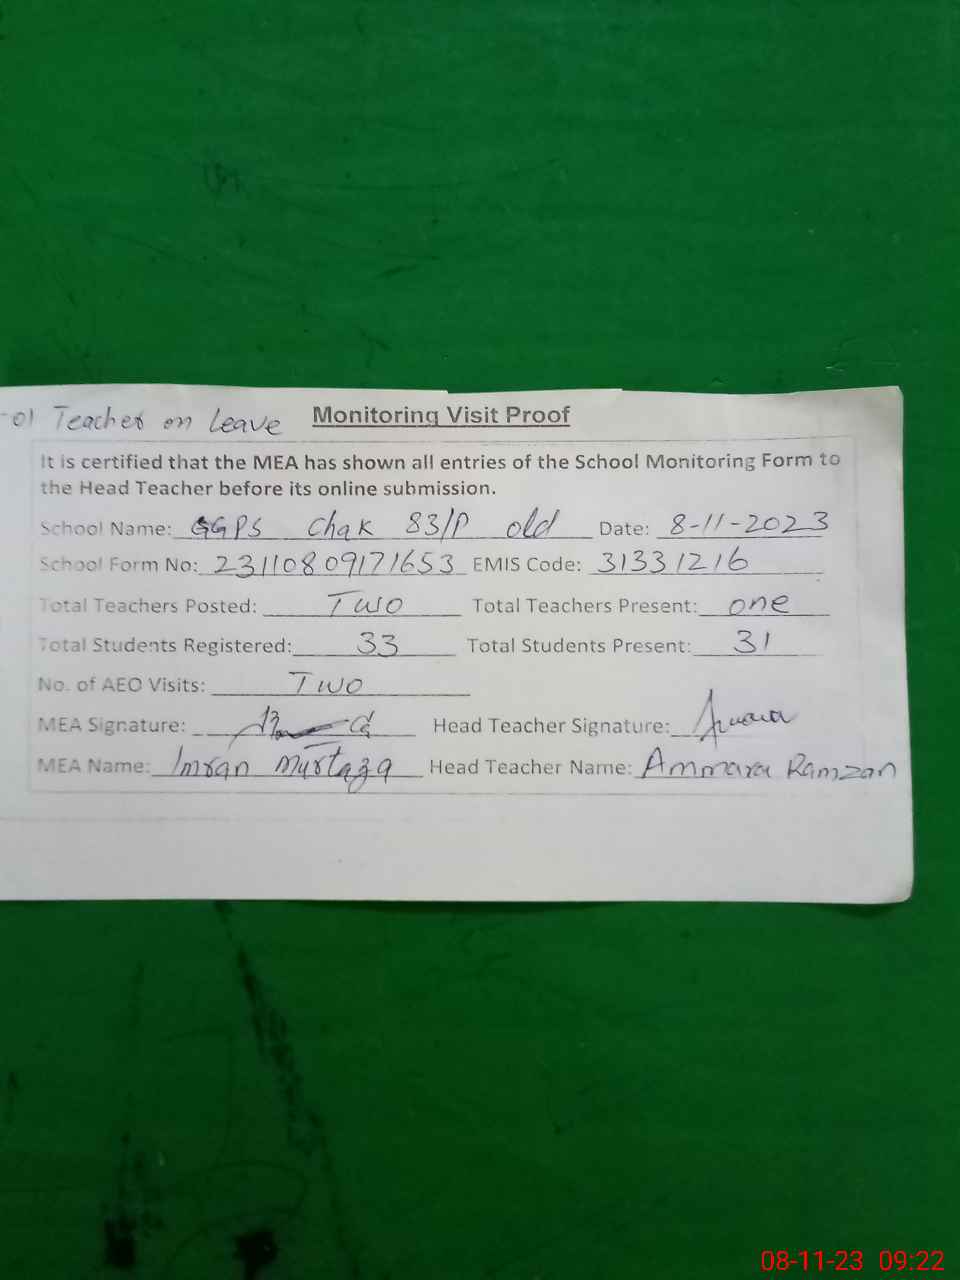 -01 Teacher on Leave Monitoring Visit Proof
It is certified that the MEA has shown all entries of the School Monitoring Form to
the Head Teacher before its online submission.
School Name: GGPS Chak 83/P old Date: 8-11-2023
School Form No: 23110809171653 EMIS Code: 31331216
Total Teachers Posted: Two Total Teachers Present: one
Total Students Registered: 33 Total Students Present: 31
No. of AEO Visits: Two
MEA Signature: Head Teacher Signature:
MEA Name: Imran Murtaza Head Teacher Name: Ammara Ramzan
08-11-23 09:22